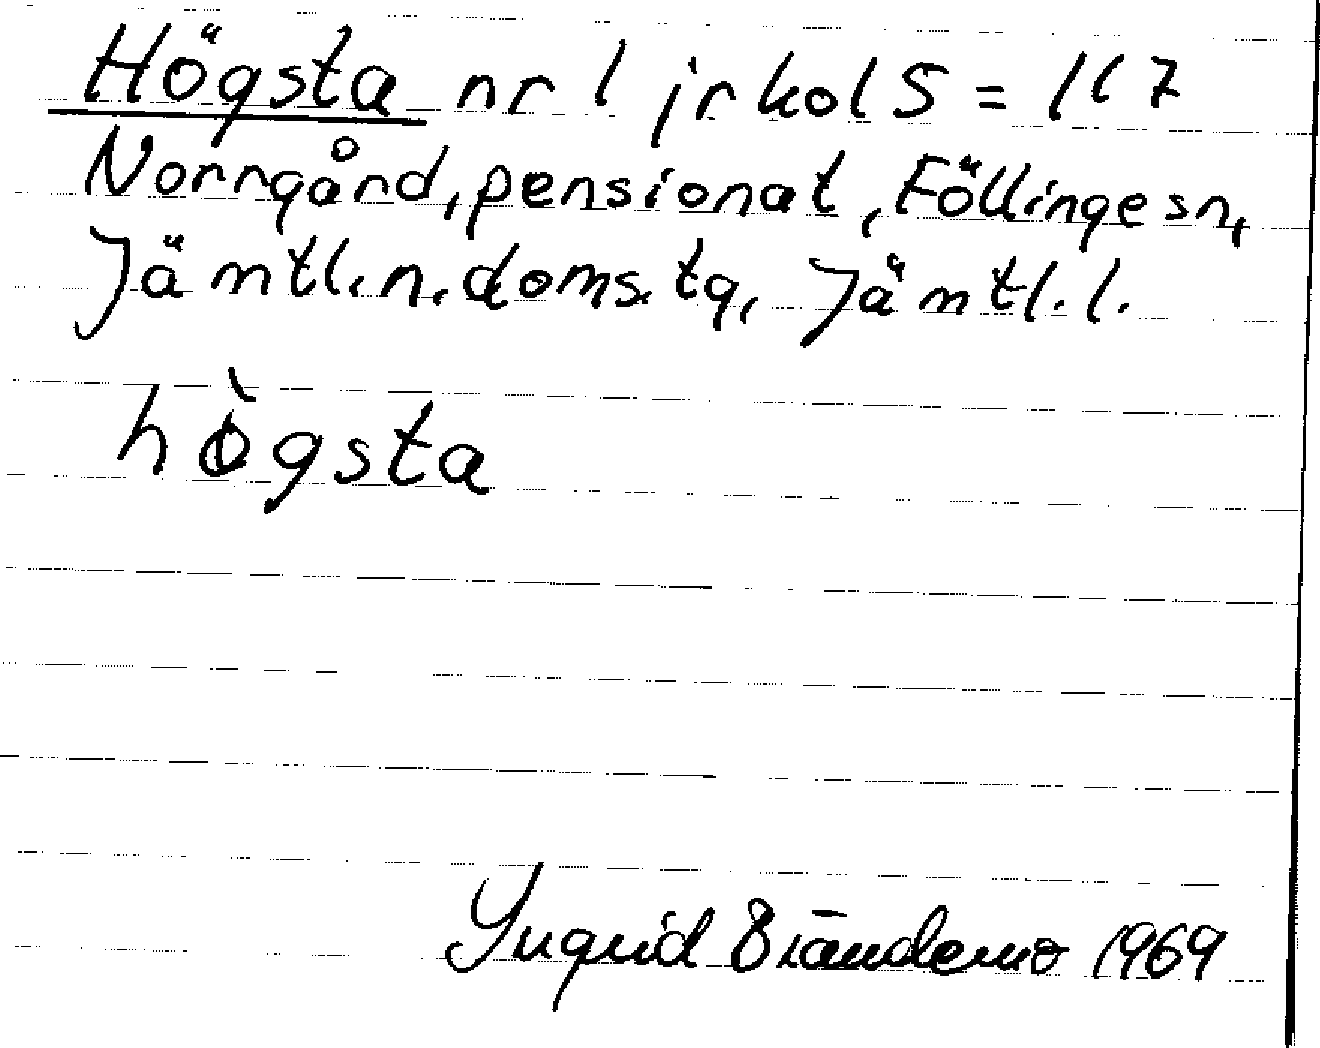 Högsta nr 1 jr kol 5 = 117
Norrgård, pensionat, Föllinge sn,
Jämtl. n. doms. tg, Jämtl. l.
hògsta
Ingrid Brändemo 1969